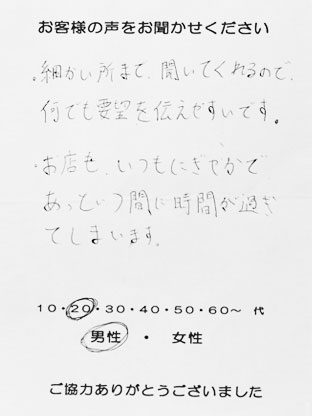 お客様の声をお聞かせください
・細かい所まで、聞いてくれるので、
何でも要望を伝えやすいです。
・お店も、いつもにぎやかで
あっという間に時間が過ぎ
てしまいます。
10・20・30・40・50・60～ 代
男性 ・ 女性
ご協力ありがとうございました